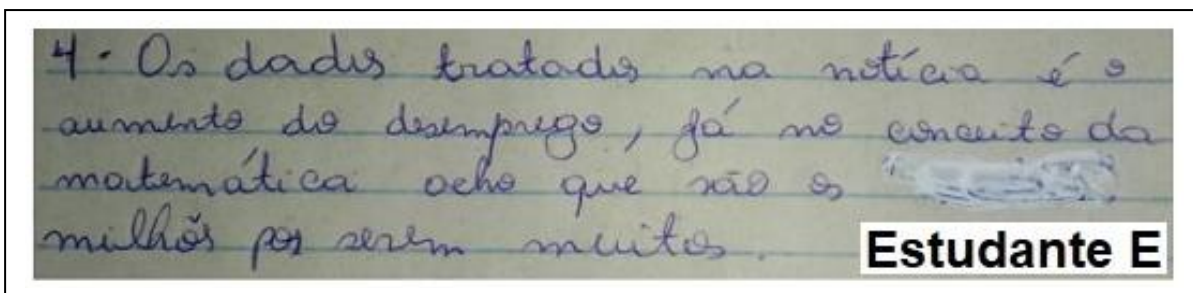 4 - Os dados tratados na notícia é o
aumento do desemprego, já no conceito da
matemática acho que são os
milhõs por serem muitos.
Estudante E